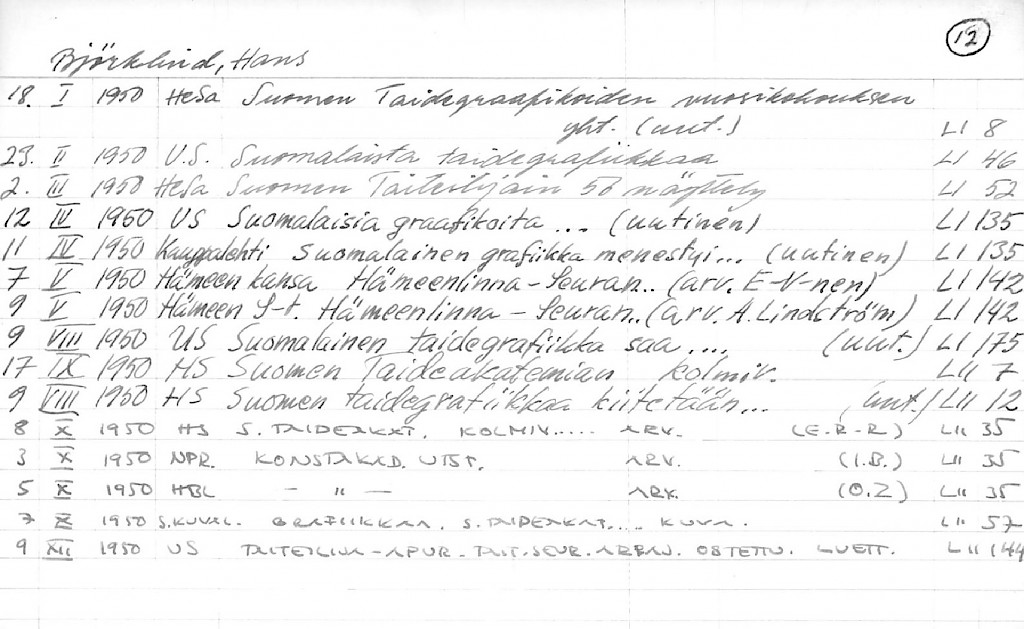 12
Björklind, Hans
18. I 1950 HeSa Suomen Taidegraafikoiden vuosikokouksen
yht. (uut.) LI 8
23. II 1950 U.S. Suomalaista taidegrafiikkaa LI 46
2. III 1950 HeSa Suomen Taiteilijain 50 näyttely LI 52
12 IV 1950 US Suomalaisia graafikoita ... (uutinen) LI 135
11 IV 1950 Kauppalehti Suomalainen grafiikka menestyi... (uutinen) LI 135
7 V 1950 Hämeen kansa Hämeenlinna-Seuran.. (arv. E-V-nen) LI 142
9 V 1950 Hämeen S-t. Hämeenlinna-Seuran.. (arv. A. Lindström) LI 142
9 VIII 1950 US Suomalainen taidegrafiikka saa .... (uut.) LI 175
17 IX 1950 HS Suomen Taideakatemian kolmiv. LII 7
9 VIII 1950 HS Suomen taidegrafiikkaa kiitetään... (uut.) LII 12
8 X 1950 HS S. TAIDEAKAT. KOLMIV..... ARV. (E.R-R) LII 35
3 X 1950 NPR. KONSTAKAD. UTST. ARV. (I.B.) LII 35
5 X 1950 HBL - " - ARV. (O.Z) LII 35
7 X 1950 S.KUVAL. GRAFIIKKAA. S.TAIDEAKAT.... KUVA. LII 57
9 XII 1950 US TAITEILIJA-APUR. TAIT.SEUR. ARPAJ. OSTETTU. LUETT. LII 144